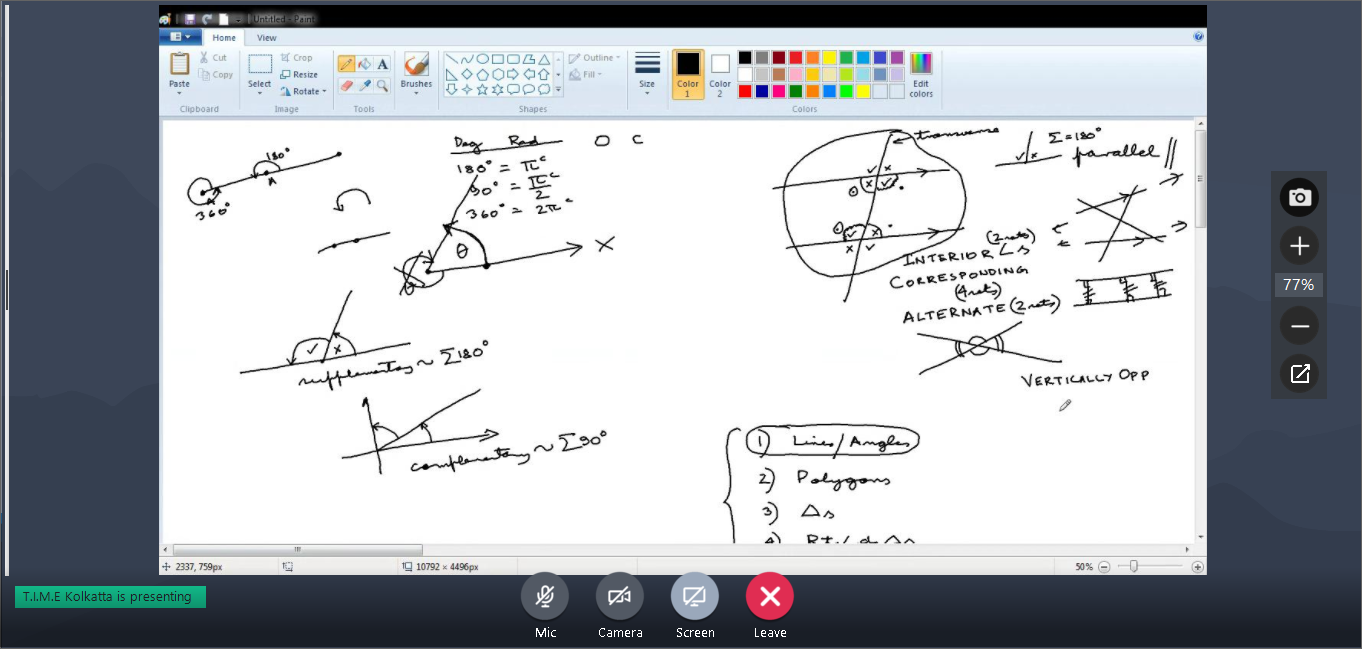 Untitled - Paint
Home View
Paste
Cut
Copy
Clipboard
Select
Crop
Resize
Rotate
Image
Tools
Brushes
Shapes
Outline
Fill
Size
Color 1
Color 2
Edit colors
Colors
180°
360°
Deg Rad
180° = πᶜ
90° = π/2ᶜ
360° = 2πᶜ
O C
θ
X
θ
✓ x
supplementary ~ Σ180°
complementary ~ Σ90°
transverse
✓ x
x ✓
✓ x
x ✓
Σ=180°
✓ x
parallel ||
(2 sets)
INTERIOR ∠s
CORRESPONDING
(4 sets)
ALTERNATE (2 sets)
VERTICALLY OPP
1) Lines/Angles
2) Polygons
3) Δs
4)
2337, 759px
10792 × 4496px
50%
77%
T.I.M.E Kolkatta is presenting
Mic
Camera
Screen
Leave